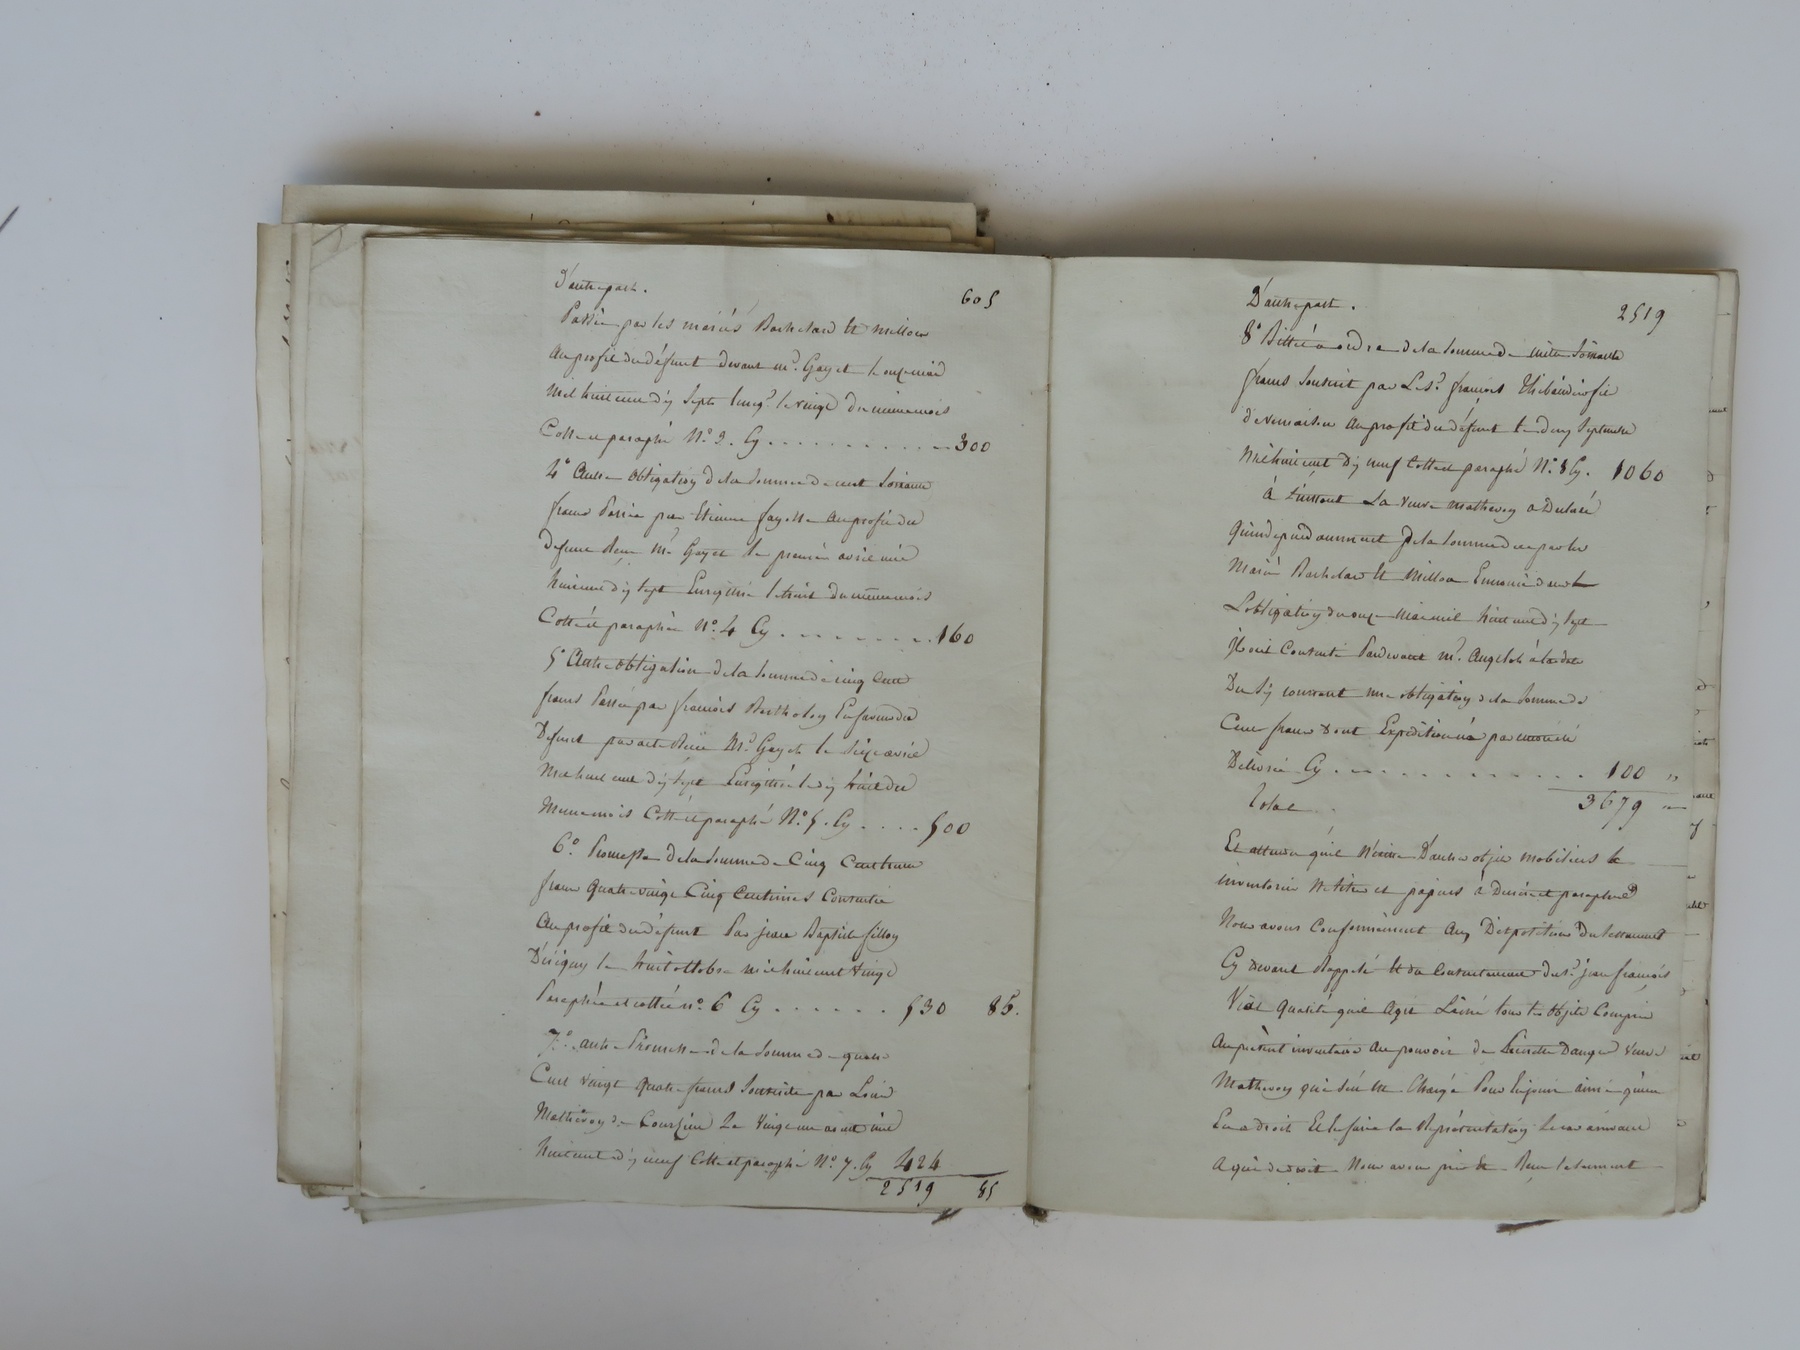 D'autre part. 605
Passée par les mariés Bachelard et millon
Au profit du défunt devant m.e Gayet le onze mai
Mil huit cent dix Sept Enreg.é le vingt du même mois
Cotté et paraphé N.o 3. Cy . . . . . . . . 300
4.o Autre obligation de la somme de cent soixante
francs Passée par Etienne fayolle au profit du
Defunt Reçue M.e Gayet le premier avril mil
huit cent dix sept Enregistré le huit du même mois
Cotté et paraphée N.o 4 Cy . . . . . . . . 160
5.o Autre obligation de la somme de cinq cent
francs Passée par françois Berthology En faveur du
Defunt par acte Reçu M.e Gayet le seize avril
Mil huit cent dix sept Enregistré le dix huit du
Meme mois Cotté et paraphé N.o 5. Cy . . . . 500
6.o Promesse de la somme de Cinq Cent trente
francs quatre vingt Cinq Centimes Consentie
Au profit du défunt Par jean Baptiste fillon
le huit octobre mil huit cent vingt
Paraphée et cottée n.o 6 Cy . . . . . . 530 85.
7.o autre Promesse de la somme de quatre
Cent vingt quatre francs Souscrite par Louis
Mathevon de Courzieu Le vingt un août mil
huit cent dix neuf Cotté et paraphé N.o 7. Cy 424
2519 85
D'autre part. 2519
8.o Billet à ordre de la somme de mille soixante
francs souscrit par Le S.r françois
au profit du défunt le deux Septembre
Mil huit cent dix neuf Cotté et paraphé N.o 8 Cy. 1060
à l'instant La veuve Mathevon a Déclaré
qu'indépendamment de la somme due par les
Mariés Bachelard et Millon Enoncée dans
L'obligation du onze Mai mil huit cent dix sept
Ils ont Consenti Pardevant M.e
Du six courant une obligation de la somme de
Cent francs dont Expédition n'a pas encore été
Délivrée Cy . . . . . . . . . . . . . 100 "
Total . 3679
Et attendu qu'il N'existe D'autres objets mobiliers à
inventorier Ni titres et papiers à Décrire et parapher
Nous avons Conformément aux Dispositions du testament
Cy devant Rappelé et du Consentement du S.r jean françois
Vial qualité qu'il Agit Laissé tous les objets Compris
Au présent inventaire au pouvoir de Danger Veuve
Mathevon qui s'en est Chargée Pour En jouir ainsi qu'elle
En a droit Et En faire la Représentation Le cas arrivant
A qui de droit Nous avons pris et Reçu le serment